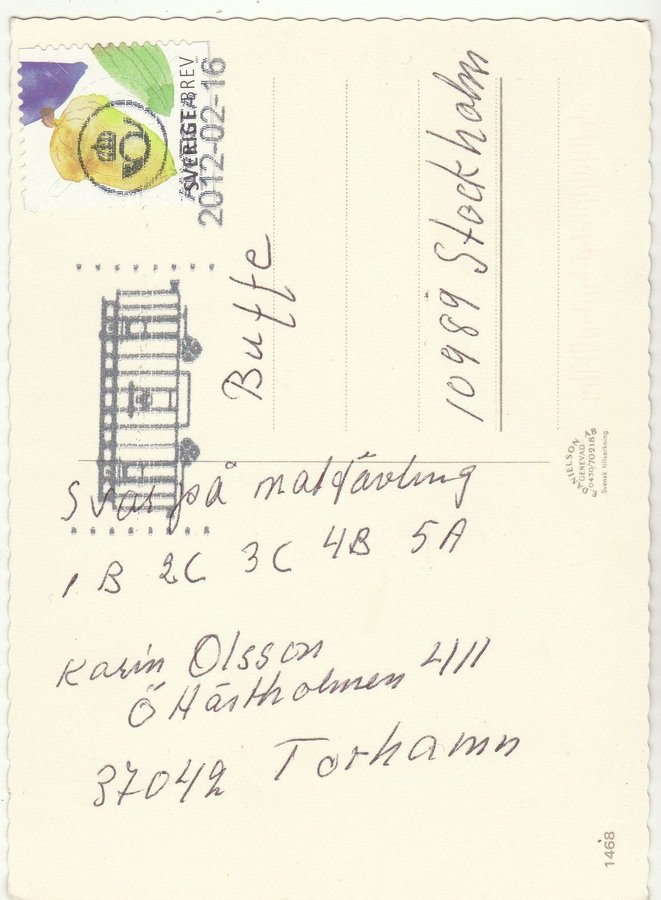 SVERIGE BREV
2012-02-16
Buffe
10989 Stockholm
Svar på mattävling
1B 2C 3C 4B 5A
Karin Olsson
Ö Hästholmen 411
37042 Torhamn
E DANIELSON
GENEVAD
0430/70218
Svensk tillverkning.
1468